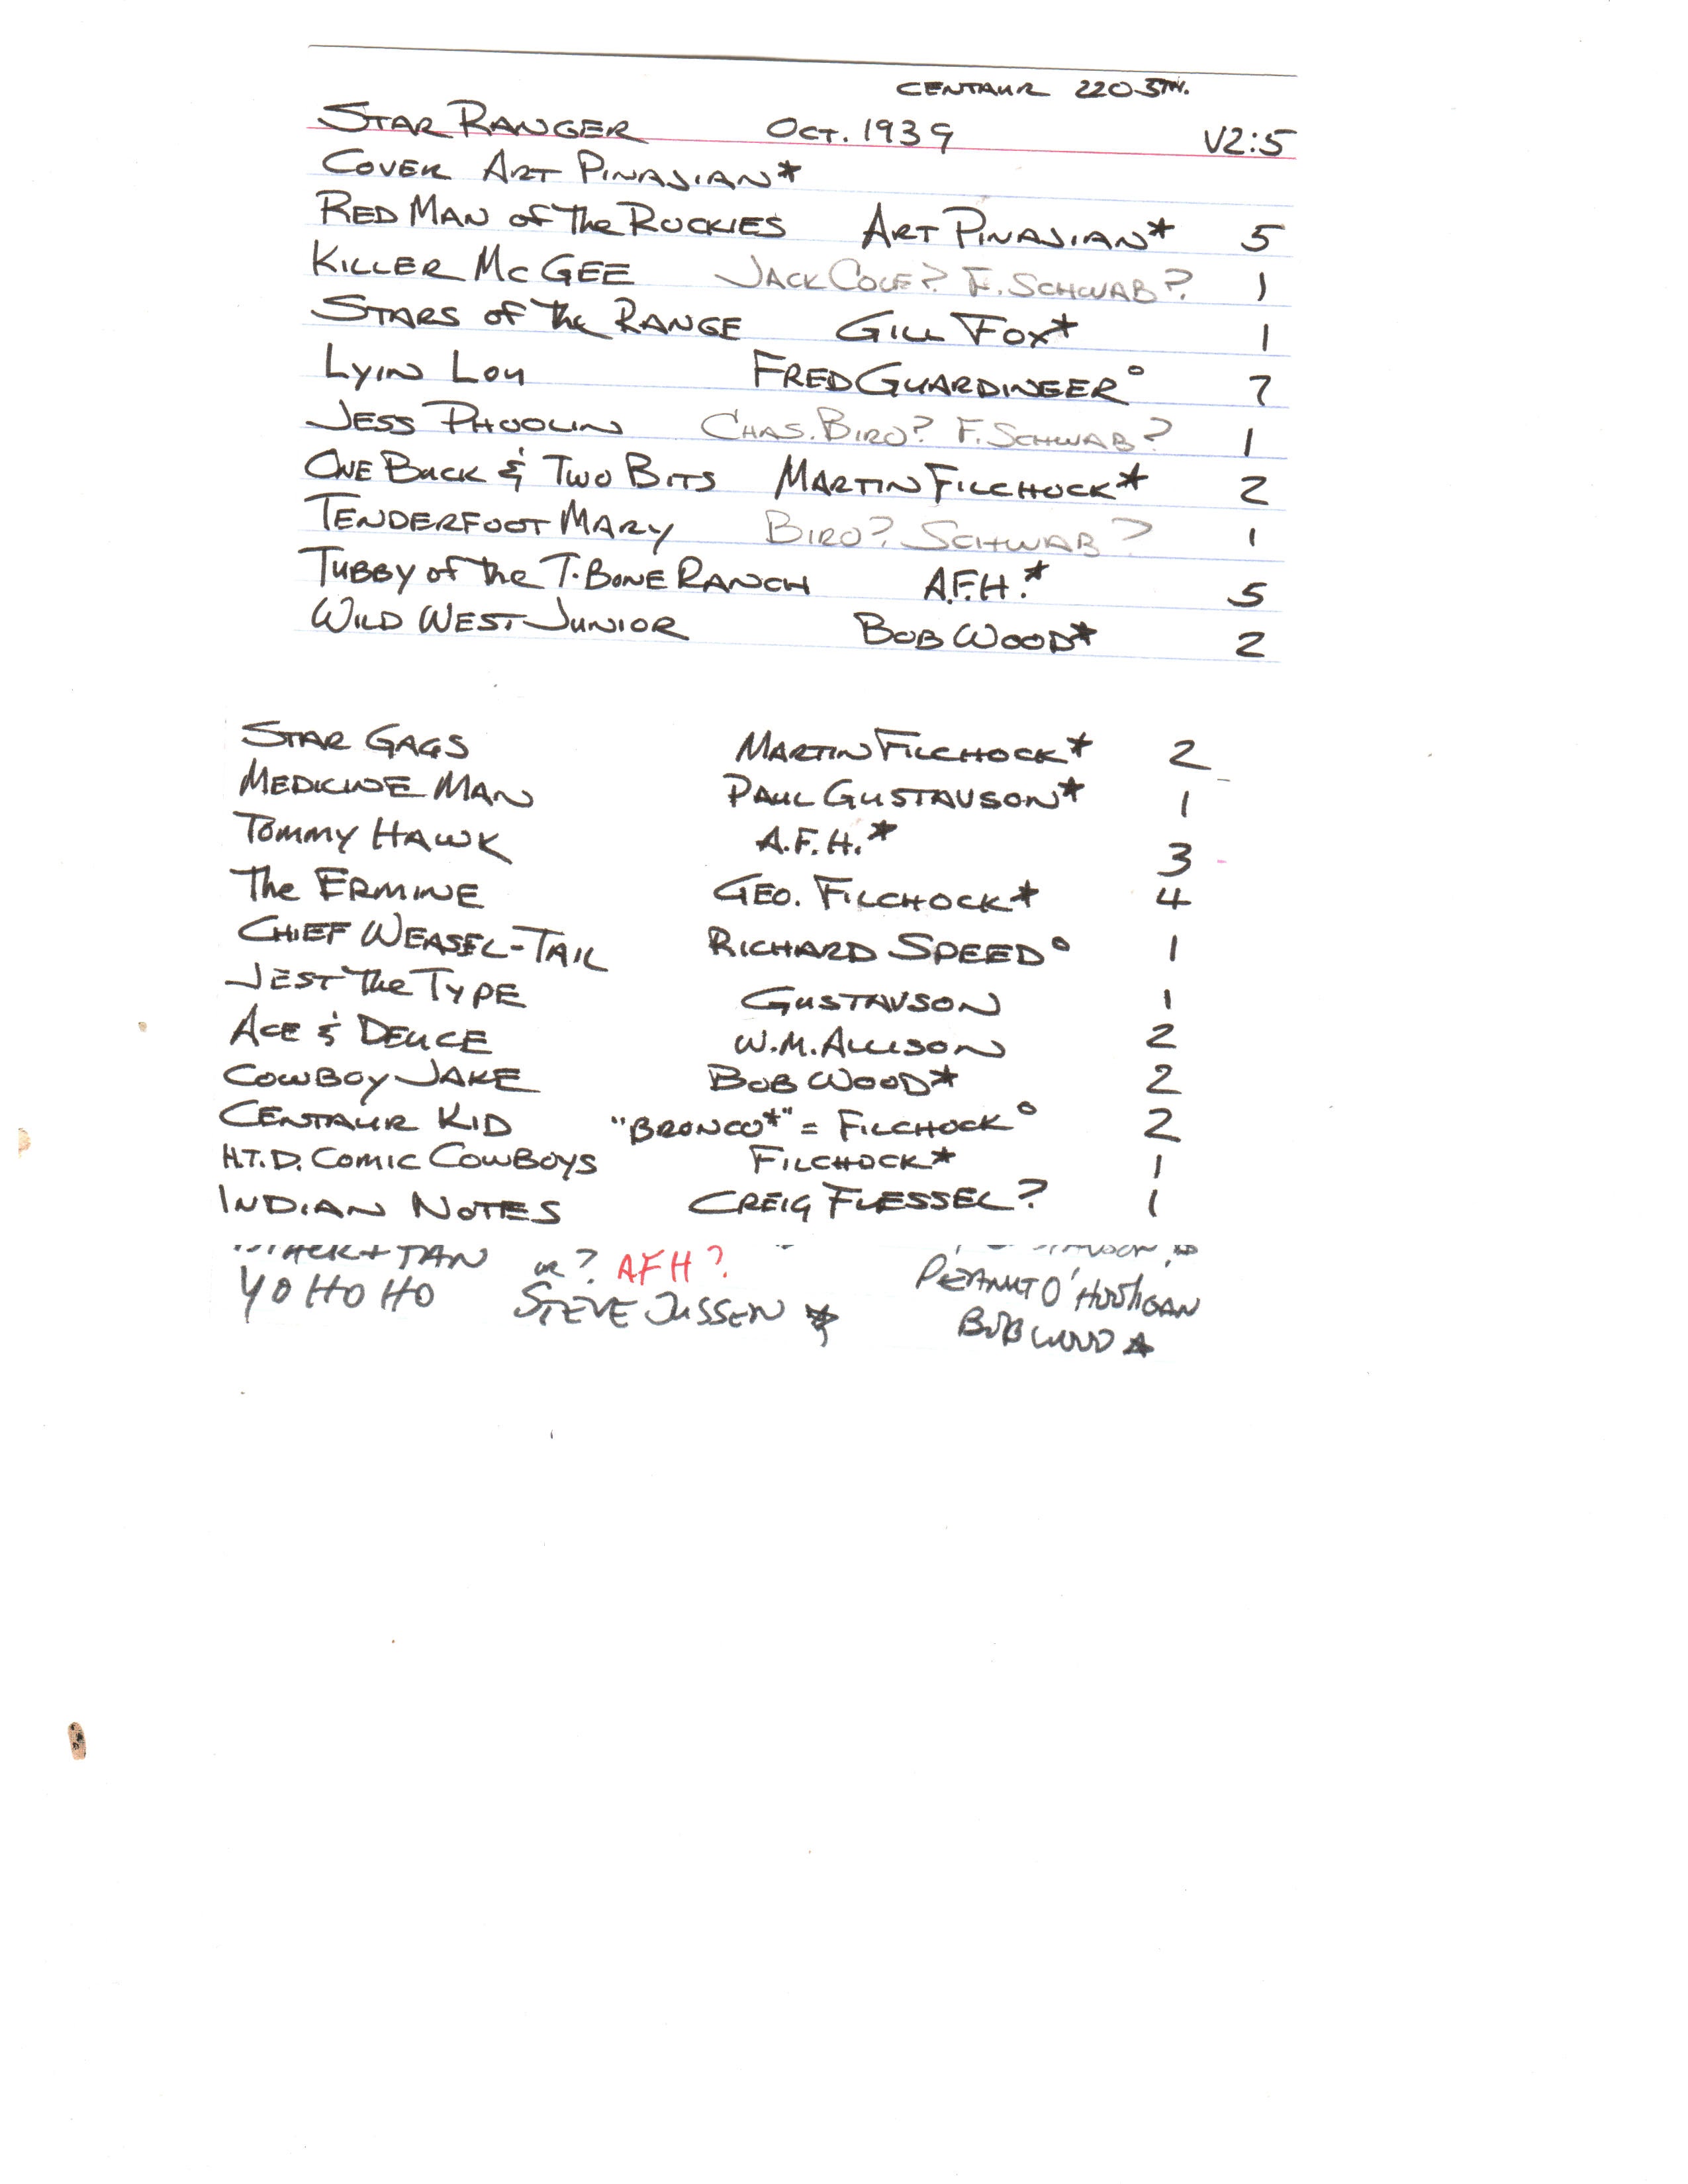 CENTAUR 220 5TH.
STAR RANGER OCT. 1939 V2:5
COVER ART PINAJIAN*
RED MAN of The ROCKIES ART PINAJIAN* 5
KILLER MCGEE JACK COLE? F. SCHWAB? 1
STARS of The RANGE GILL FOX* 1
LYIN LOU FRED GUARDINEER° 7
JESS PHOOLIN CHAS. BIRO? F. SCHWAB? 1
ONE BUCK & TWO BITS MARTIN FILCHOCK* 2
TENDERFOOT MARY BIRO? SCHWAB? 1
TUBBY of the T-BONE RANCH A.F.H.* 5
WILD WEST JUNIOR BOB WOOD* 2
STAR GAGS MARTIN FILCHOCK* 2
MEDICINE MAN PAUL GUSTAVSON* 1
TOMMY HAWK A.F.H.* 3
The ERMINE GEO. FILCHOCK* 4
CHIEF WEASEL-TAIL RICHARD SPEED° 1
JEST The TYPE GUSTAVSON 1
ACE & DEUCE W.M. ALLISON 2
COWBOY JAKE BOB WOOD* 2
CENTAUR KID "BRONCO*" = FILCHOCK° 2
H.T.D. COMIC COWBOYS FILCHOCK* 1
INDIAN NOTES CREIG FLESSEL? 1
TAN or? AFH?
YO HO HO STEVE JUSSEN * PEANUT O'HOOLIGAN
BOB WOOD *